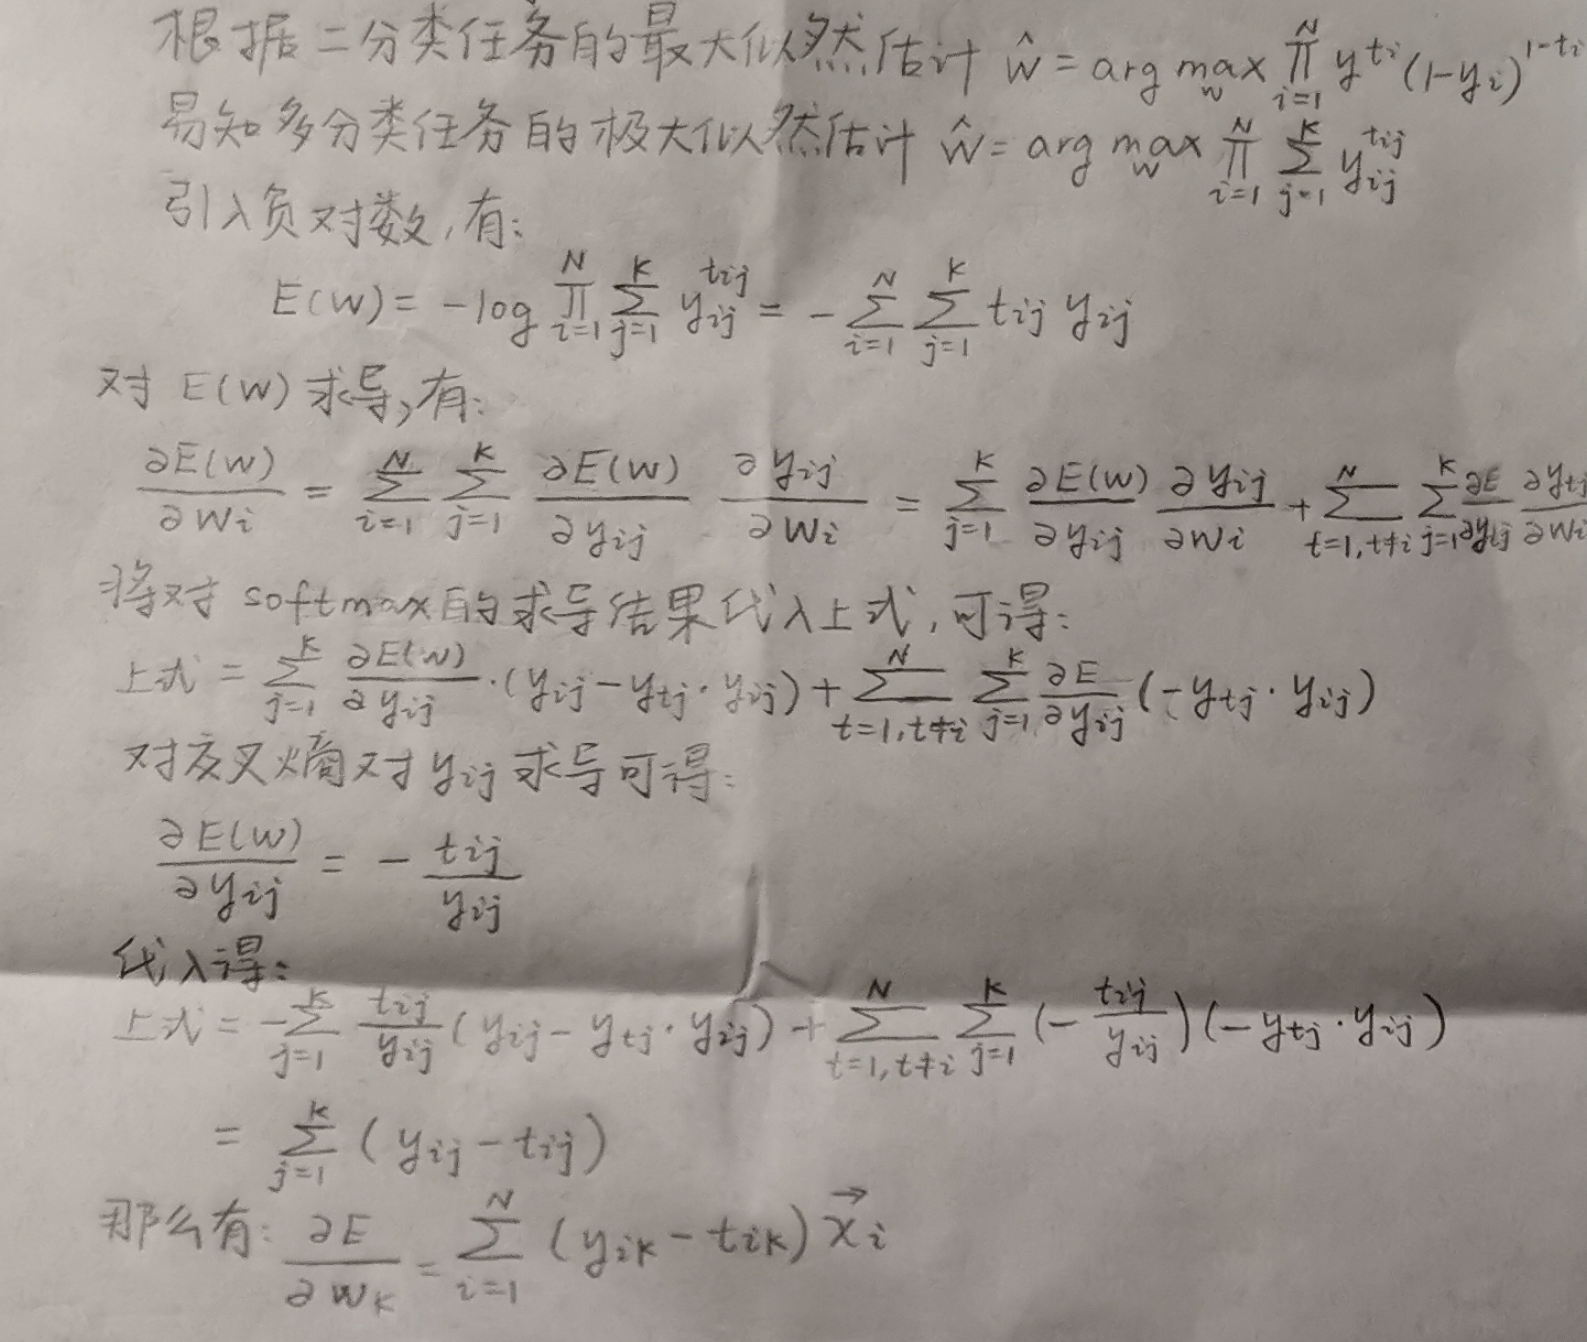 根据二分类任务的最大似然估计 ŵ = arg max_w ∏_{i=1}^{N} y^{t_i} (1-y_i)^{1-t_i}
易知多分类任务的极大似然估计 ŵ = arg max_w ∏_{i=1}^{N} ∑_{j=1}^{K} y_{ij}^{t_{ij}}
引入负对数,有:
E(w) = -log ∏_{i=1}^{N} ∑_{j=1}^{K} y_{ij}^{t_{ij}} = -∑_{i=1}^{N} ∑_{j=1}^{K} t_{ij} y_{ij}
对 E(w) 求导,有:
∂E(w)/∂w_i = ∑_{i=1}^{N} ∑_{j=1}^{K} ∂E(w)/∂y_{ij} ∂y_{ij}/∂w_i = ∑_{j=1}^{K} ∂E(w)/∂y_{ij} ∂y_{ij}/∂w_i + ∑_{t=1,t≠i}^{N} ∑_{j=1}^{K} ∂E/∂y_{tj} ∂y_{tj}/∂w_i
将对 softmax的求导结果代入上式,可得:
上式 = ∑_{j=1}^{K} ∂E(w)/∂y_{ij} · (y_{ij} - y_{tj} · y_{ij}) + ∑_{t=1,t≠i}^{N} ∑_{j=1}^{K} ∂E/∂y_{ij} (-y_{tj} · y_{ij})
对交叉熵对 y_{ij} 求导可得:
∂E(w)/∂y_{ij} = - t_{ij}/y_{ij}
代入得:
上式 = -∑_{j=1}^{K} t_{ij}/y_{ij} (y_{ij} - y_{tj} · y_{ij}) + ∑_{t=1,t≠i}^{N} ∑_{j=1}^{K} (- t_{ij}/y_{ij}) (-y_{tj} · y_{ij})
= ∑_{j=1}^{K} (y_{ij} - t_{ij})
那么有: ∂E/∂w_K = ∑_{i=1}^{N} (y_{iK} - t_{iK}) x⃗_i